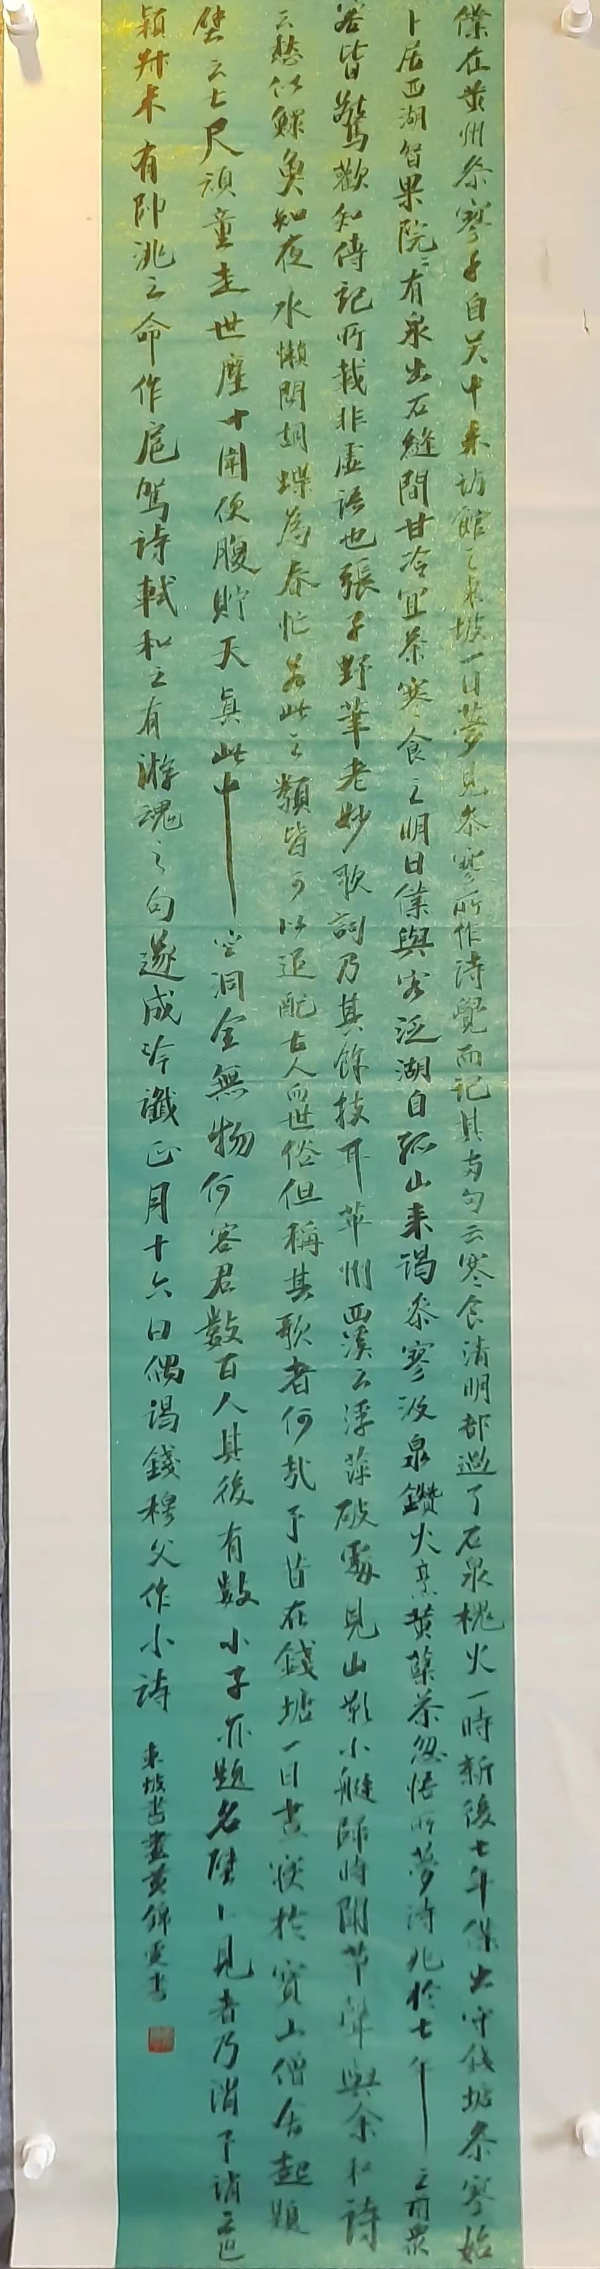 僕在黄州参寥子自吴中来访館之東坡一日夢見参寥所作詩覺而記其両句云寒食清明都過了石泉槐火一時新後七年僕出守錢塘参寥始
卜居西湖智果院院有泉出石縫間甘冷宜茶寒食之明日僕與客泛湖自孤山来謁参寥汲泉鑽火烹黄蘖茶忽悟所夢詩兆於七年之前衆
客皆驚歎知傳記所载非虚語也張子野筆老妙歌詞乃其餘技耳華州西溪云浮萍破處見山影小艇歸時聞草聲與余和詩
云愁似鰥魚知夜永懶同胡蝶為春忙若此之類皆可以追配古人而世俗但稱其歌者何哉予昔在錢塘一日晝寢於寳山僧舍起題
壁云七尺頑童走世塵十圍便腹貯天真此中空洞全無物何容君數百人其後有數小子亦題名壁上見者乃謂予誚之也
穎叔未有帥洮之命作扈駕詩軾和之有游魂之句遂成吟讖正月十六日偶謁錢穆父作小詩
東坡書畫黄錦雲書